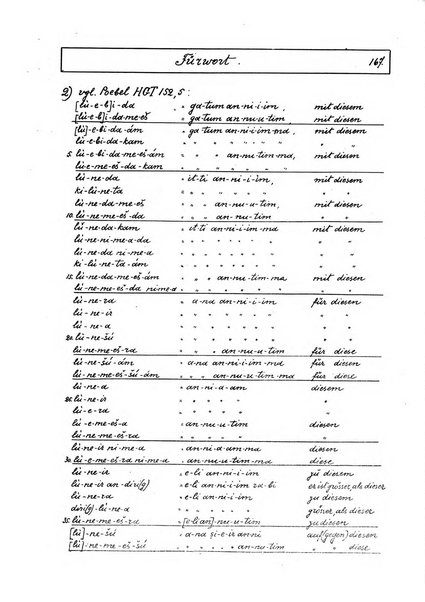 Fürwort. 167.
2) vgl. Poebel HGT 152, 5:
[lú-e-b]i-da " ga-tum an-ni-i-im, mit diesem
[lú-e-b]i-da-me-eš " ga-tum an-nu-u-tim mit diesen
[lú]-e-bi-da-ám " ga-tum an-ni-i-im-ma, mit diesem
lú-e-bi-da-kam " " " " " "
5. lú-e-bi-da-me-eš-ám " " an-nu-u-tim-ma, mit diesen
lú-e-me-eš-da-kam " " " " "
lú-ne-da " it-ti an-ni-i-im mit diesem
ki-lú-ne-ta " " " " " "
lú-ne-da-me-eš " " " an-nu-u-tim, mit diesen
10. lú-ne-me-eš-da " " " an-nu-u-tim "
lú-ne-da-kam " it-ti an-ni-i-im-ma mit diesem
lú-ne-ni-me-a-da " " " " " "
lú-ne-da-nam " " " " " "
ki-lú-ne-ta-ám " " " " " "
15. lú-ne-da-me-eš-ám " " " an-nu-tim-ma mit diesen
lú-ne-me-eš-da ni-me-a " " " " "
lú-ne-ra " a-na an-ni-i-im für diesen
lú-ne-ir " " " " "
lú-ne-a " " " " "
20. lú-ne-šú " " " " "
lú-ne-me-eš-ra " " " an-nu-u-tim für diese
lú-ne-šú-ám " a-na an-ni-i-im-ma für diesen
lú-ne-me-eš-šú-ám " " " an-nu-u-tim-ma für diese
lú-ne-a " an-ni-a-am diesem
25. lú-ne-ir " " " " "
lú-e-ra " " " " "
lú-e-me-eš-a " an-nu-u-tim diesen
lú-ne-me-eš-a " " " " "
lú-ne-ir ni-me-a " an-ni-a-am-ma diesen
30. lú-e-me-eš-ra ni-me-a " an-nu-u-tim-ma diese
lú-ne-ir " e-li an-ni-i-im zu diesem
lú-ne-ir an-diri(g) " e-li an-ni-i-im ra-bi er ist grösser, als dieser
lú-ne-ra " e-li an-ni-i-im zu diesem
diri(g)-lú-ne-a " " " " " grösser, als dieser
35. lú-ne-me-eš-ra " [e-li an]-nu-u-tim zu diesen
[lú]-ne-šú " a-na ṣi-e-ir an-ni auf(gegen) diesem
[lú]-ne-me-eš-šú " " " " " " diese